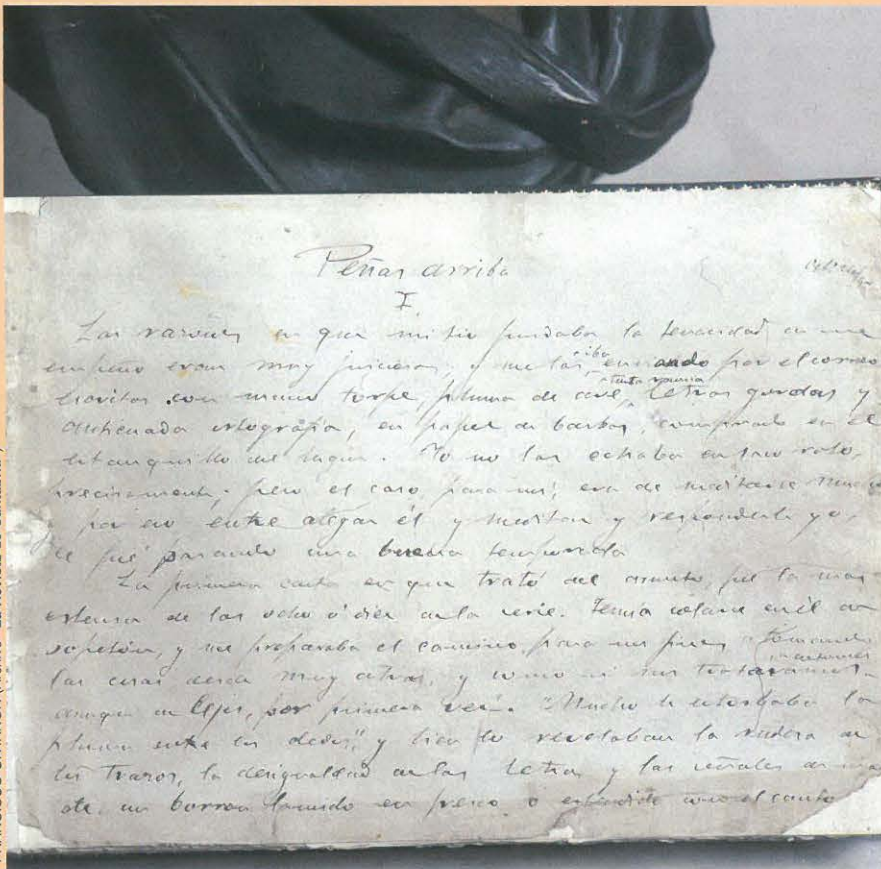 Peñas arriba
I
Las razones en que mi tio fundaba la tenacidad de su
empeño eran muy juiciosas, y me las iba enviando por el correo
escritas con mano torpe, pluma de ave, tinta rancia, letras gordas y
anticuada ortografía, en papel de barbas, comprado en el
estanquillo del lugar. Yo no las echaba en saco roto,
precisamente; pero el caso, para mi, era de meditarse mucho
por eso entre alegar él y meditar y responderle yo,
se fué pasando una buena temporada
La primera carta en que trató del asunto, fué la mas
estensa de las ocho ó diez de la serie. Temía colarse en él de
sopetón, y me preparaba el camino para sus fines, tomando
las cosas desde muy atras, y como si nos tratáramos entonces
aunque de lejos, por primera vez. "Mucho le estorbaba la
pluma entre los dedos", y bien lo revelaban la rudeza de
los trazos, la desigualdad de las letras y las señales de mas
de un borron lamido en fresco o estendido con el canto